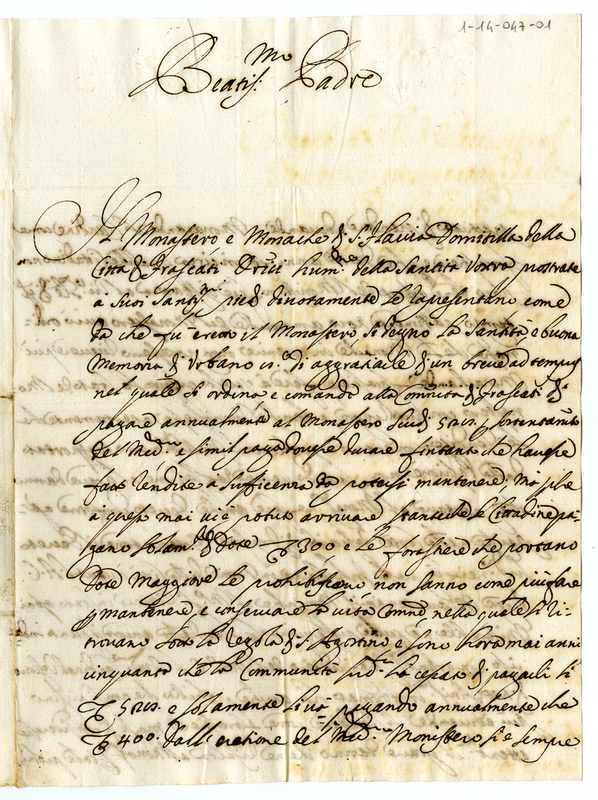 1-14-047-01
Beatis.mo Padre
Il Monastero, e Monache di S. Flavia Domitilla della
Città di Frascati Or.ci hum.me della Santità Vostra prostrate
a Suoi Santis.mi piedi divotamente Le rapresentano come
da che fù eretto il Monastero, si degnò La Santità, e buona
Memoria di Urbano di aggratiarle di un breve ad tempus
nel quale si ordina, e comanda alla Comunità di Frascati di
pagare annualmente al Monastero Scudi p sostentam.to
del Med.mo e simil paga dovesse durare fintanto che havesse
fatto rendite a sufficenza da potersi mantenere; Mà
a questo mai vi è potuto arrivare stanteche le Cittadine pa-
gano Solam.te di Dote 300 e Le forastiere che portano
dote Maggiore Le non sanno come più fare
p mantenere, e conservare la vita comne, nella quale si ri-
trovano sotto la regola di S. Agostino, e sono hora mai anni
cinquanta che la Communità sud.a hà cessato di pagarli li
e solamente li và pagando annualmente che
400. dall'eretione del Med.mo Monistero si è sempre